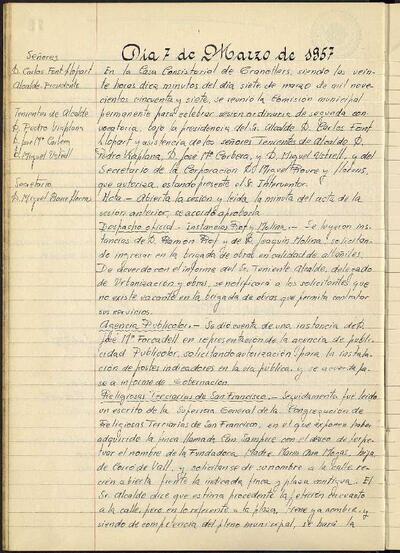 Día 7 de Marzo de 1957
Señores
D. Carlos Font Llopart
Alcalde-Presidente
Tenientes de Alcalde
D. Pedro Viaplana
D. José Mª Corbera
D. Miquel Vetrell
Secretario
D. Miguel Roure Llorens
En la Casa Consistorial de Granollers, siendo las vein-
te horas diez minutos del día siete de marzo de mil nove-
cientos cincuenta y siete, se reunió la Comisión municipal
permanente para celebrar sesión ordinaria de segunda con-
vocatoria, bajo la presidencia del Sr. Alcalde D. Carlos Font
Llopart y asistencia de los señores Tenientes de Alcalde D.
Pedro Viaplana, D. José Mª Corbera, y D. Miquel Vetrell, y del
Secretario de la Corporación D. Miguel Roure y Llorens,
que autoriza, estando presente el Sr. Interventor.
Acta - Abierta la sesión y leída la minuta del acta de la
sesión anterior, se acordó aprobarla
Despacho oficial - instancias Prof y Molina.- Se leyeron ins-
tancias de D. Ramón Prof y de D. Joaquín Molina solicitan-
do ingresar en la brigada de obras en calidad de albañiles.
De acuerdo con el informe del Sr. Teniente Alcalde, delegado
de Urbanización y obras, se notificará a los solicitantes que
no existe vacante en la brigada de obras que permita contratar
sus servicios.
Agencia Publicolor.- Se dio cuenta de una instancia de D.
José Mª Forcadell en representación de la agencia de publi-
cidad Publicolor, solicitando autorización para la instala-
ción de postes indicadores en la vía pública, y se acuerda pa-
se a informe de Gobernación.
Religiosas Terciarias de San Francisco.- Seguidamente fue leído
un escrito de la Superiora General de la Congregación de
Religiosas Terciarias de San Francisco, en el que exponen haber
adquirido la finca llamada Can Sampere con el deseo de perpe-
tuar el nombre de la Fundadora Madre Maria Ana Mogas, hija
de Corró de Vall, y solicitan se dé su nombre a la calle re-
cién abierta frente la indicada finca y plaza contigua. El
Sr. Alcalde dice que estima procedente la petición en cuanto
a la calle, pero en lo referente a la plaza, tiene ya nombre, y
siendo de competencia del pleno municipal, se hará la